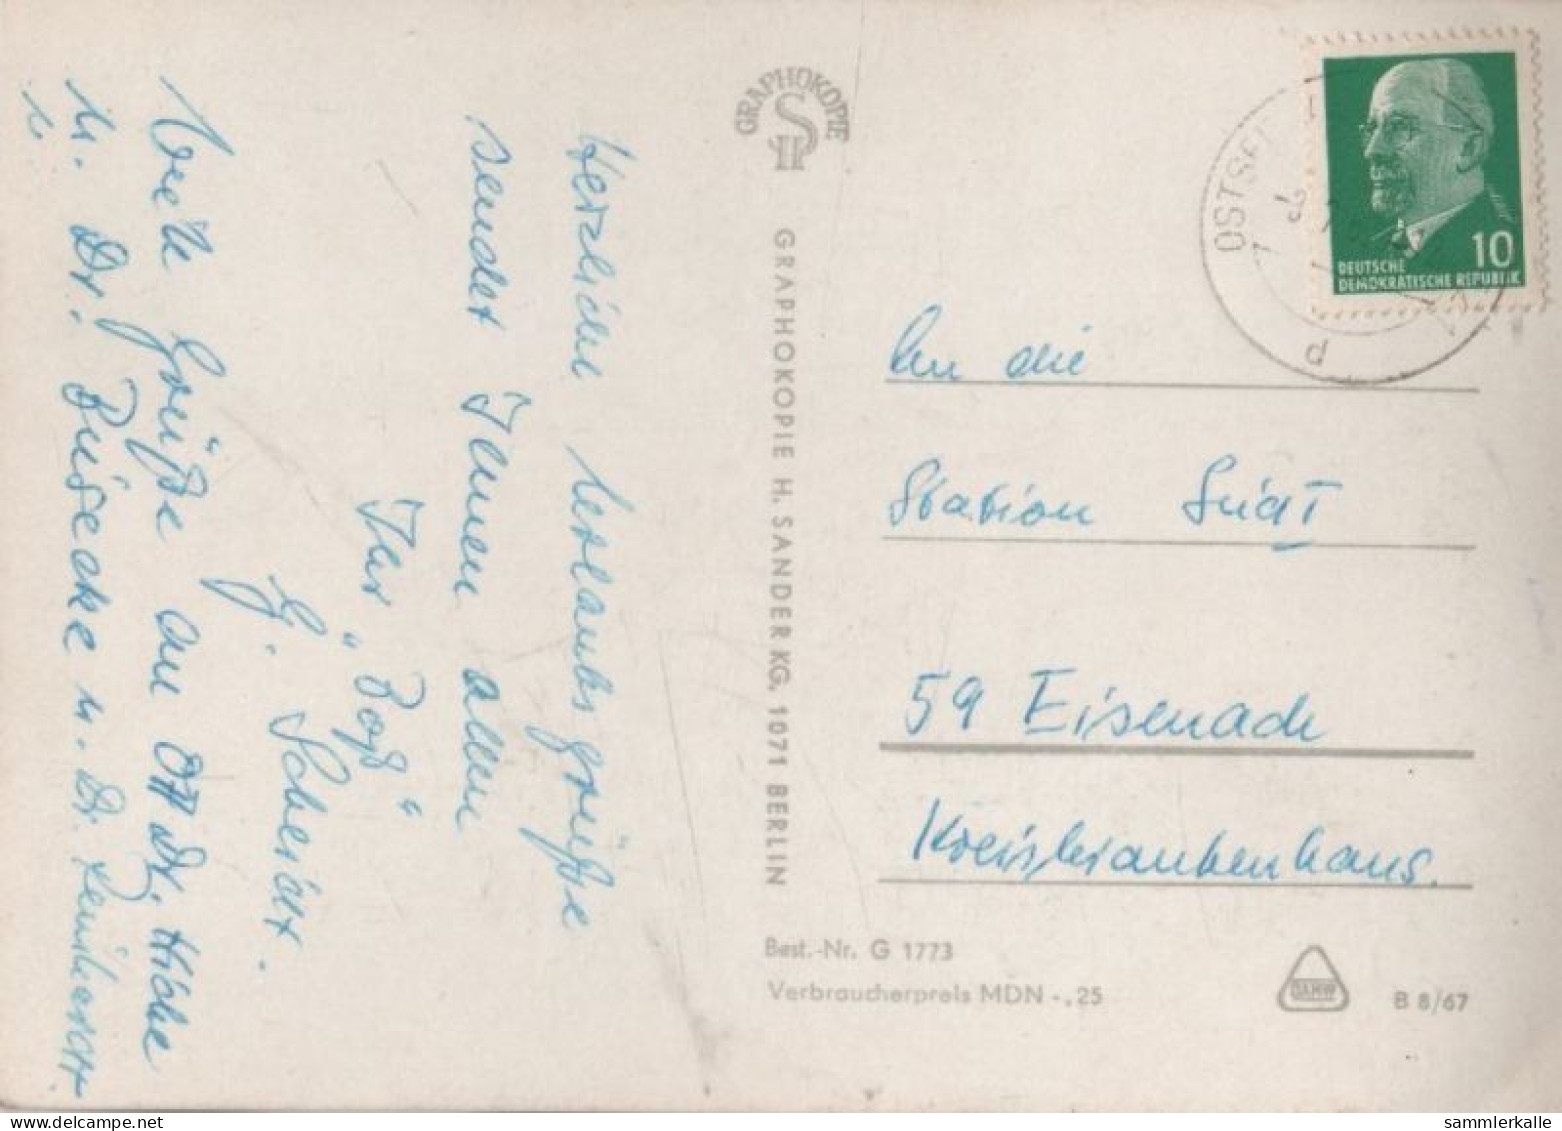 Herzliche Urlaubsgrüße
sendet Ihnen allen
Ihr „Boß“
G. Schericht.
Viele Grüße an OA Dr.
u. Dr. u. Dr.
GRAPHOKOPIE
GRAPHOKOPIE H. SANDER KG. 1071 BERLIN
OSTSEE
10
DEUTSCHE
DEMOKRATISCHE REPUBLIK
An die
Station
59 Eisenach
Kreiskrankenhaus.
Best.-Nr. G 1773
Verbraucherpreis MDN -,25
DAMW
B 8/67
sammlerkalle